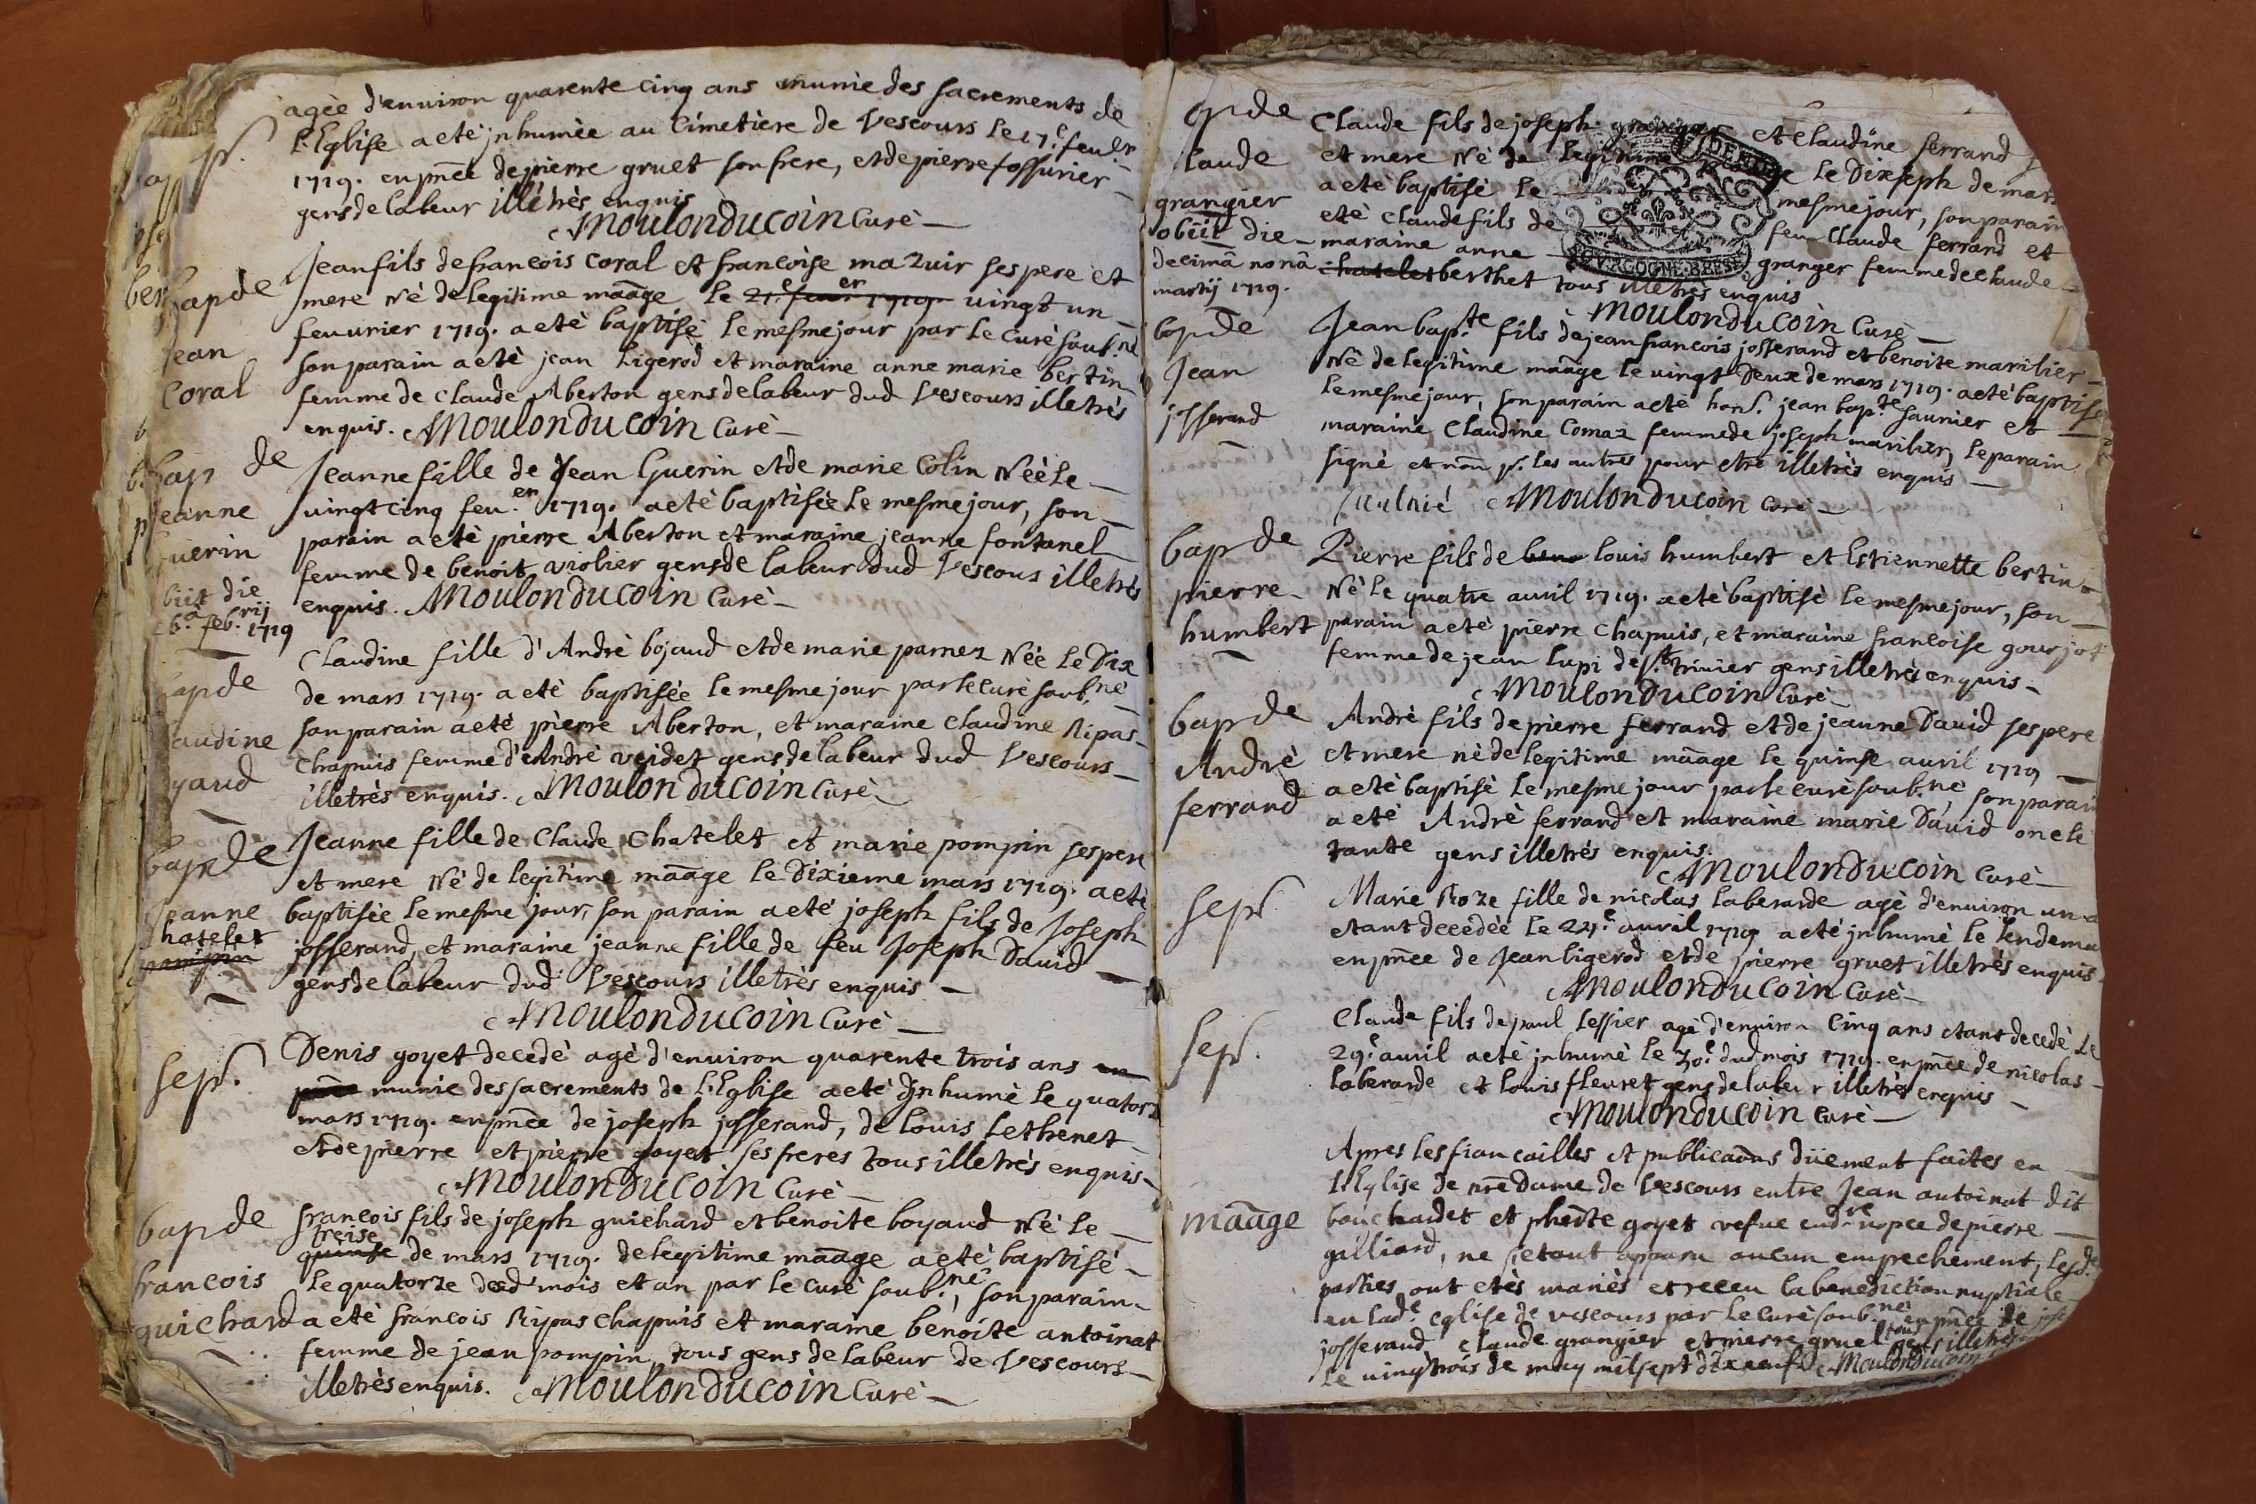 agèe d'environ quarente cinq ans munie des sacrements de
l'Eglise a etè jnhumèe au Cimetière de Vescours le 17.e feu.er
1719. en pnce de pierre gruet son frere, et de pierre fossurier
gens de labeur illétrès enquis
Moulonducoin Curè
bap de
jean
Coral
Jean fils de francois Coral et francoise mazuir ses pere et
mere Nè de legitime maage le 21.e feu.er 1719 vingt un
feuvrier 1719. a etè baptisè le mesme jour par le Curè soub.nè
son parain a etè jean Ligerod et maraine anne marie bertin
femme de Claude Aberton gens de labeur dud Vescours illetrès
enquis. Moulonducoin Curè
bap de
jeanne
Guerin
obiit die
feb.rij 1719
Jeanne fille de Jean Guerin et de marie Colin Nèè le
vingt cinq feu.er 1719. a etè baptisèe le mesme jour, son
parain a etè pièrre Aberton et maraine jeanne fontanel
femme de benoit violier gens de labeur dud Vescous illetrès
enquis. Moulonducoin Curè
bap de
laudine
yaud
Claudine fille d'Andrè bojaud et de marie parnez Nèe le Dix
de mars 1719. a etè baptisèe le mesme jour par le curè soub.nè
son parain a etè pièrre Aberton, et maraine Claudine Ripas
Chapuis femme d'Andrè veidet gens de labeur dud Vescours
illetrès enquis. Moulonducoin Curè
bap de
jeanne
hatelet
pompin
Jeanne fille de Claude Chatelet et marie pompin ses pere
et mere Nè de legitime maage le Dixieme mars 1719. a etè
baptisèe le mesme jour, son parain a etè joseph fils de Joseph
josserand, et maraine jeanne fille de feu Joseph David
gens de labeur dud Vescours illetrès enquis
Moulonducoin Curè
sep.
Denis goyet decedè agè d'environ quarente trois ans en
pnce munie des sacrements de l'Eglise a etè Jnhumè le quatorz
mars 1719. en pnce de joseph josserand, de Louis Lethenet
et de pierre et pièrre goyet ses freres tous illetrès enquis
Moulonducoin Curè
bap de
francois
guichard
francois fils de joseph guichard et benoite boyaud Nè le
treise
quinse de mars 1719. de legitime maage a etè baptisè
le quatorze dud mois et an par le Curè soub.nè, son parain
a etè francois Ripas Chapuis et maraine benoite antoinat
femme de jean pompin tous gens de labeur de Vescours
illetrès enquis. Moulonducoin Curè
ap de
laude
grangier
obiit die
decimâ nonâ
martij 1719.
Claude fils de joseph granger et Claudine ferrand
et mere Nè de legitime le Dixseph de mars
a etè baptisè le mesme jour, son parain
etè Claude fils de feu Claude ferrand et
maraine anne granger femme de Claude
chatelet berthet tous illetrès enquis
Moulonducoin Curè
bap de
Jean
josserand
Jean bap.te fils de jean francois josserand et benoite marilier
Nè de legitime maage le vingt Deux de mars 1719. a etè baptisè
le mesme jour, son parain a etè hon. jean bap.te saunier et
maraine Claudine Comaz femme de joseph marilier, le parain
signè et non p. les autres pour etre illetrès enquis
Moulonducoin Curè
bap de
pierre
humbert
Pierre fils de beno louis humbert et Estiennette bertin
Nè le quatre auril 1719. a etè baptisè le mesme jour, son
parain a etè pierre Chapuis, et maraine francoise gourjot
femme de jean lupi de st trivier gens illetrès enquis
Moulonducoin Curè
bap de
Andrè
ferrand
Andrè fils de pierre ferrand et de jeanne David ses pere
et mere nè de legitime maage le quinse auril 1719
a etè baptisè le mesme jour par le curè soub.nè son parain
a etè Andrè ferrand et maraine marie David oncle
tante gens illetrès enquis.
Moulonducoin Curè
sep.
Marie Roze fille de nicolas laberarde agè d'environ un a
etant decedèè le 22.e auril 1719 a etè jnhumè le lendema
en pnce de Jean ligerod et de pierre gruet illetrès enquis
Moulonducoin Curè
sep.
Claude fils de paul Tessier agè d'environ Cinq ans etant decedè le
29.e auril a etè jnhumè le 30.e dud mois 1719. en pnce de nicolas
laberarde et louis fleuret gens de labeur illetrès enquis
Moulonducoin Curè
maage
Apres les fiancailles et publicaons düement faites en
l'Eglise de nre Dame de Vescours entre Jean antoinat dit
bouchardet et phiberte goyet vefue en dre nopce de pierre
gilliard, ne setant apparu aucun empechement, lesd.
parties ont etès mariès et receu la benediction nuptiale
en lad.e eglise de vescours par le curè soub.nè en pnce de jose
josserand Claude grangier et pierre gruel tous gens illetrès
le vingtrois de may mil sept dix neuf. Moulonducoin